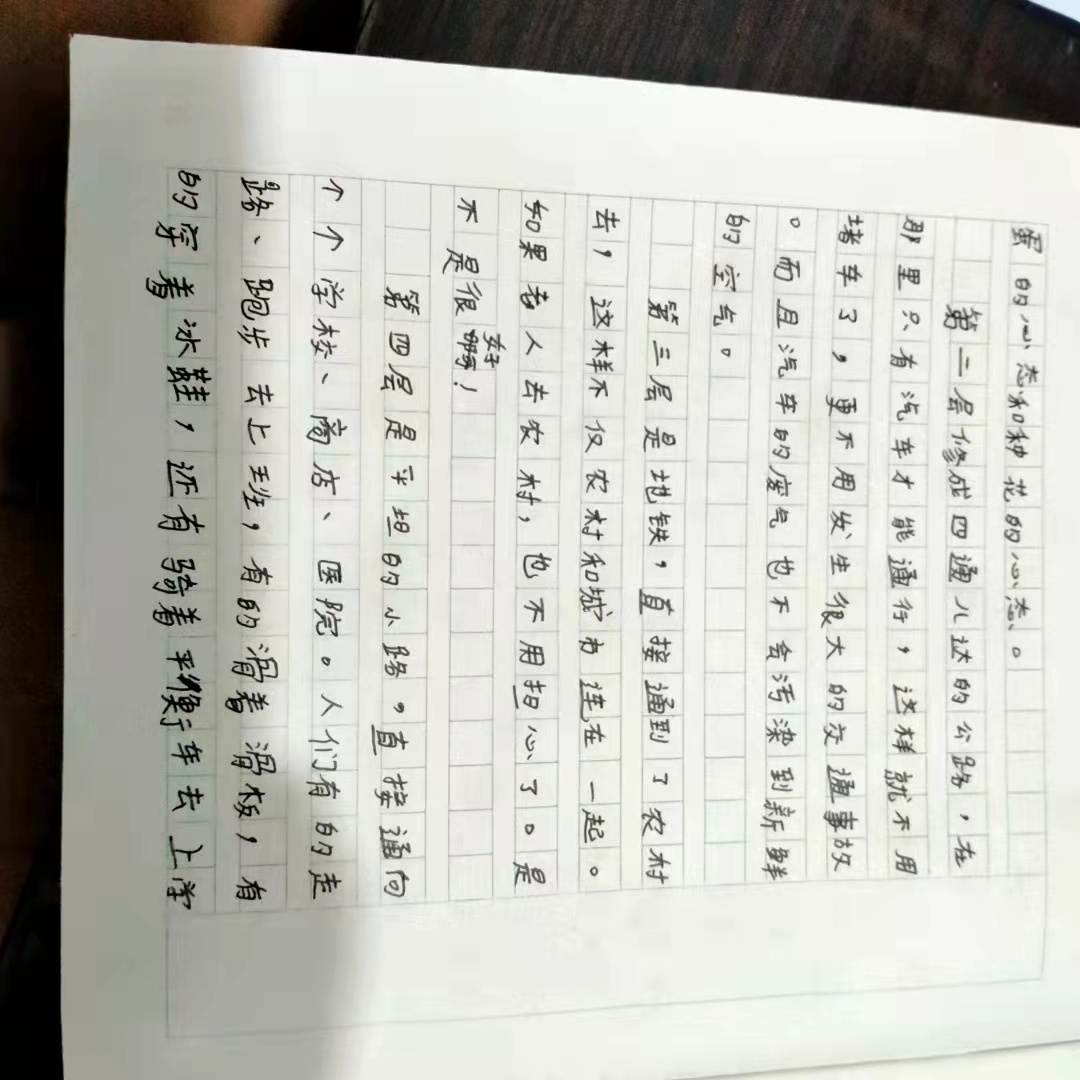 蛋的心态和种花的心态。
第二层修成四通八达的公路，在
那里只有汽车才能通行，这样就不用
堵车了，更不用发生很大的交通事故
。而且汽车的废气也不会污染到新鲜
的空气。
第三层是地铁，直接通到了农村
去，这样不仅农村和城市连在一起。
如果老人去农村，也不用担心了。是
不是很好啊！
第四层是平坦的小路，直接通向
个个学校、商店、医院。人们有的走
路、跑步去上班，有的滑着滑板，有
的穿着冰鞋，还有骑着平衡车去上学